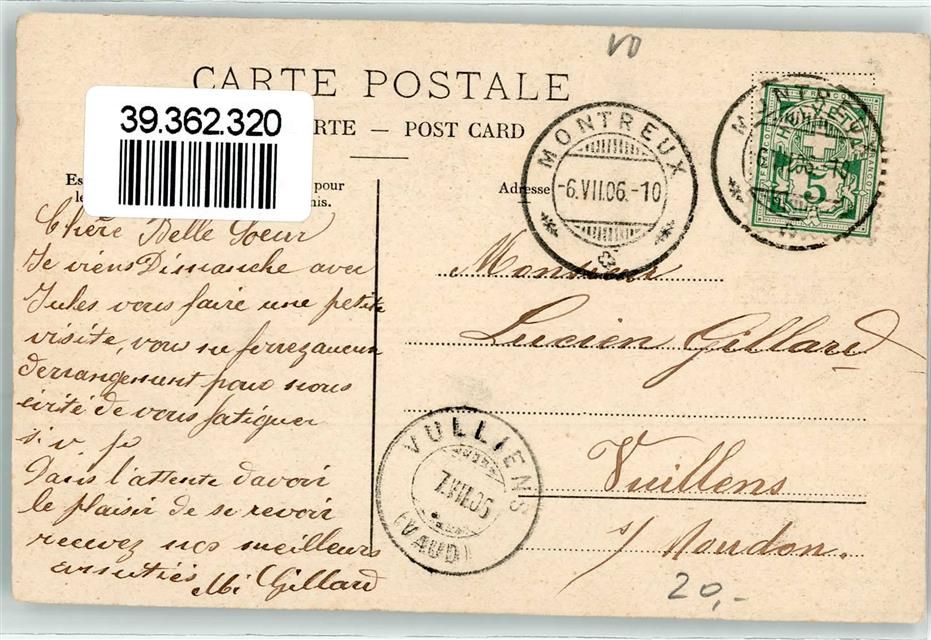 VD
CARTE POSTALE
39.362.320
RTE — POST CARD
Es pour
le nis.
Adresse
MONTREUX
-6.VII.06.-10
MONTREUX
HELVETIA
FRANCO
5
Chère Belle Soeur
Je viens Dimanche avec
Jules vous faire une petite
visite, vous ne ferrez aucun
derrangement pour nous
évité de vous fatiguer
s. v. p
Dans l'attente d'avoir
le plaisir de se revoir
recevez nos meilleurs
amitiés Gillard
Monsieur
Lucien Gillard
Vuillens
s/ Moudon.
VULLIENS
7.VII.06
(VAUD)
20,-